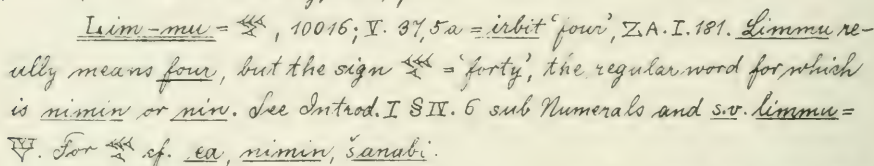 Lim-mu = 𒐏, 10016; V. 37,5a = irbit 'four', ZA. I. 181. Limmu re-
ally means four, but the sign 𒐏 = 'forty', the regular word for which
is nimin or nin. See Introd. I § IV. 6 sub Numerals and s.v. limmu =
𒐼. For 𒐏 cf. ea, nimin, šanabi.